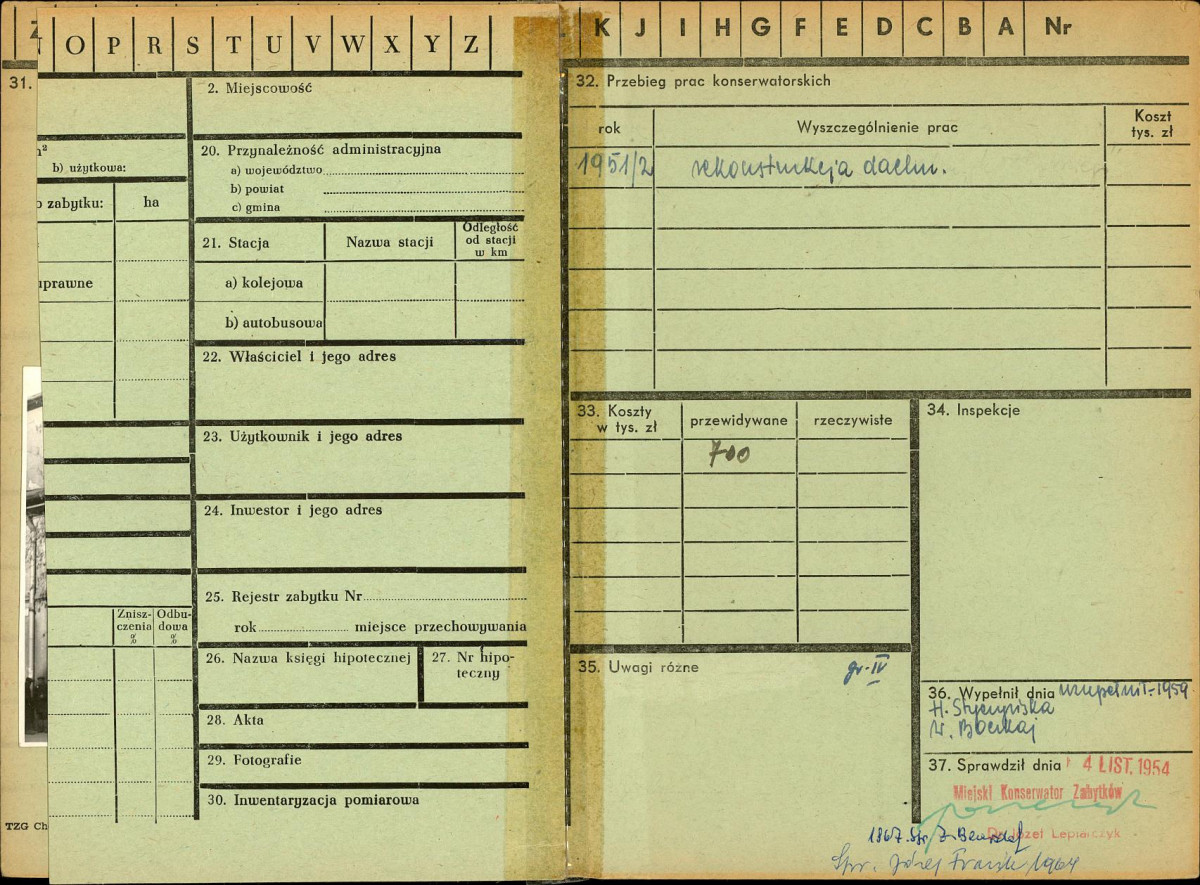 Z
N O P R S T U V W X Y Z
K J I H G F E D C B A Nr
31.
b) użytkowa:
zabytku: ha
uprawne
Znisz-czenia % Odbu-dowa %
TZG Ch
2. Miejscowość
20. Przynależność administracyjna
a) województwo
b) powiat
c) gmina
21. Stacja Nazwa stacji Odległość od stacji w km
a) kolejowa
b) autobusowa
22. Właściciel i jego adres
23. Użytkownik i jego adres
24. Inwestor i jego adres
25. Rejestr zabytku Nr
rok miejsce przechowywania
26. Nazwa księgi hipotecznej
27. Nr hipo-
teczny
28. Akta
29. Fotografie
30. Inwentaryzacja pomiarowa
32. Przebieg prac konserwatorskich
rok Wyszczególnienie prac Koszt tys. zł
1951/2 rekonstrukcja dachu.
33. Koszty w tys. zł przewidywane rzeczywiste
700
34. Inspekcje
35. Uwagi różne gr-IV
36. Wypełnił dnia uzupełnił-1959
H. Styczyńska
37. Sprawdził dnia 4 LIST. 1954
Miejski Konserwator Zabytków
Dr Józef Lepiarczyk
Spr. Józef 1964